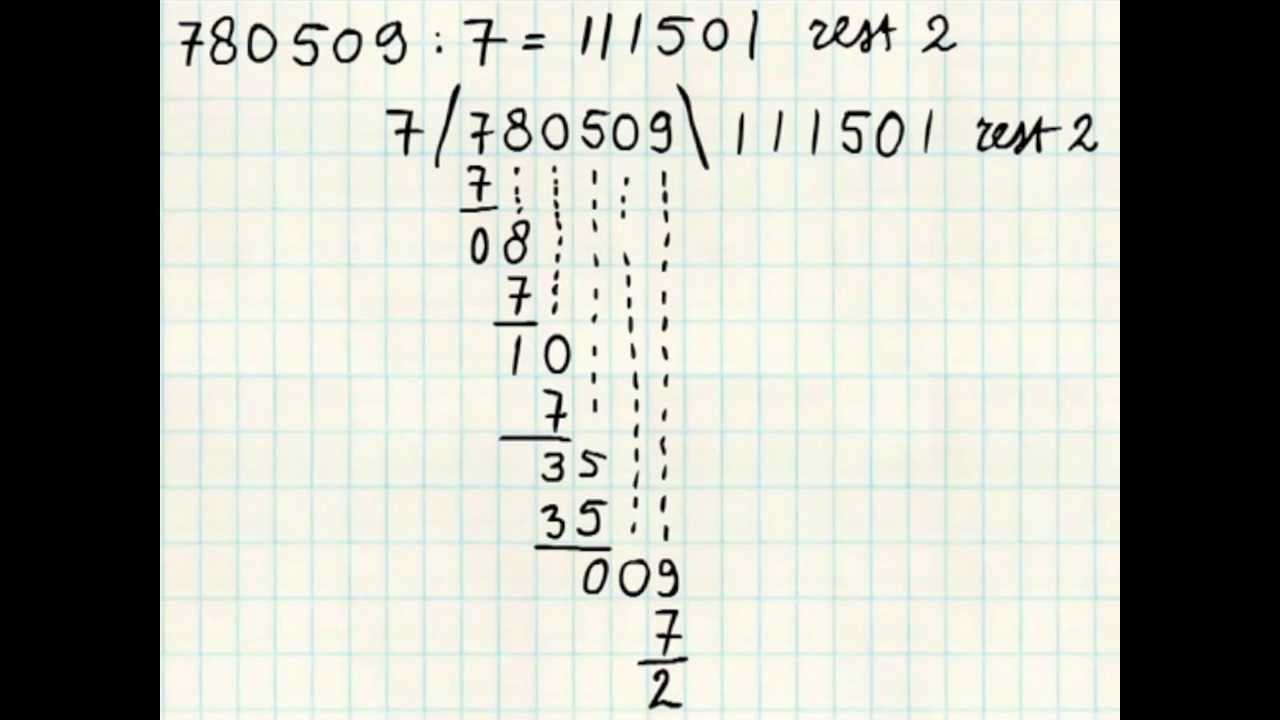 780509 : 7 = 111501 rest 2
7/780509\111501 rest 2
7
08
7
10
7
35
35
009
7
2